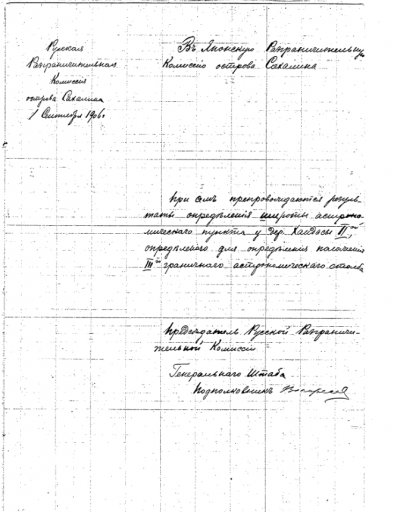 Русская
Разграничительная
Комиссия
острова Сахалина
1 Сентября 1906
Въ Японскую Разграничительную
Комиссію острова Сахалина
При семъ препровождаются резуль-
таты опредѣленія широты астроно-
мическаго пункта у дер. Хандосы II
опредѣленія положенія
III граничнаго астрономическаго столба
Предсѣдатель Русской Разграничи-
тельной Комиссіи
Генеральнаго Штаба
Подполковникъ